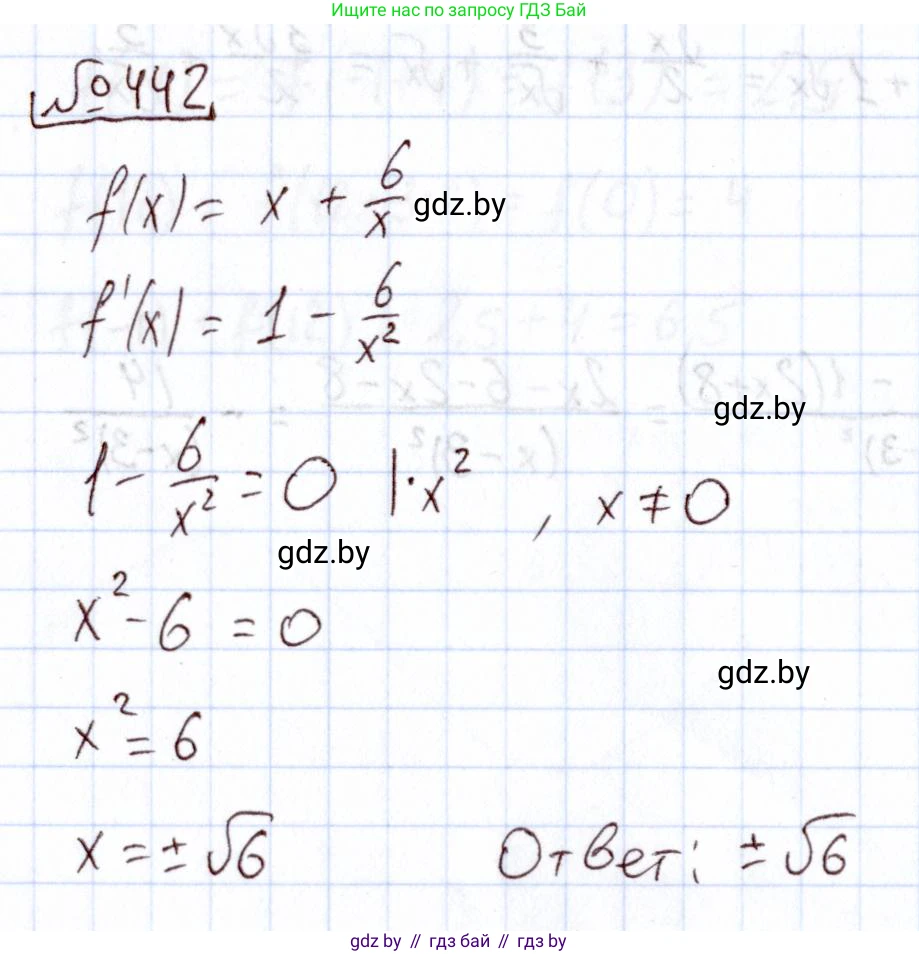 Ищите нас по запросу ГДЗ Бай
№442
f(x) = x + 6/x
gdz.by
f'(x) = 1 - 6/x²
gdz.by
1 - 6/x² = 0 |·x² , x ≠ 0
gdz.by
x² - 6 = 0
gdz.by
x² = 6
x = ± √6 Ответ: ± √6
gdz.by // гдз бай // гдз by